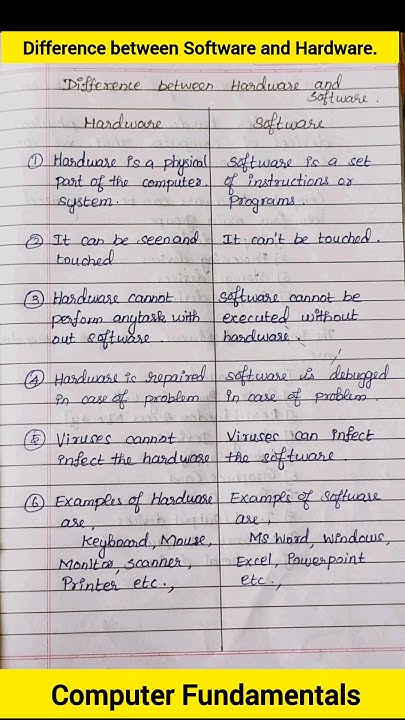 Difference between Software and Hardware.
Difference between Hardware and
Software.
Hardware
Software
① Hardware is a physical
part of the computer
system.
Software is a set
of instructions or
Programs.
② It can be seen and
touched
It can't be touched.
③ Hardware cannot
perform anytask with
out software.
Software cannot be
executed without
hardware.
④ Hardware is repaired
in case of problem
software is debugged
in case of problem.
⑤ Viruses cannot
infect the hardware
Viruses can infect
the software.
⑥ Examples of Hardware
are,
Keyboard, Mouse,
Monitor, Scanner,
Printer etc.,
Example of Software
are,
Ms Word, Windows,
Excel, Powerpoint
etc.,
Computer Fundamentals